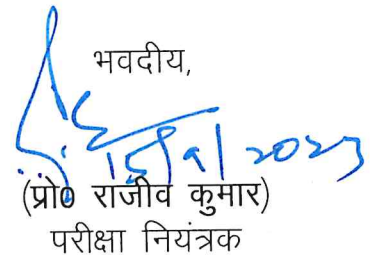 भवदीय,
15/9/2023
(प्रो0 राजीव कुमार)
परीक्षा नियंत्रक